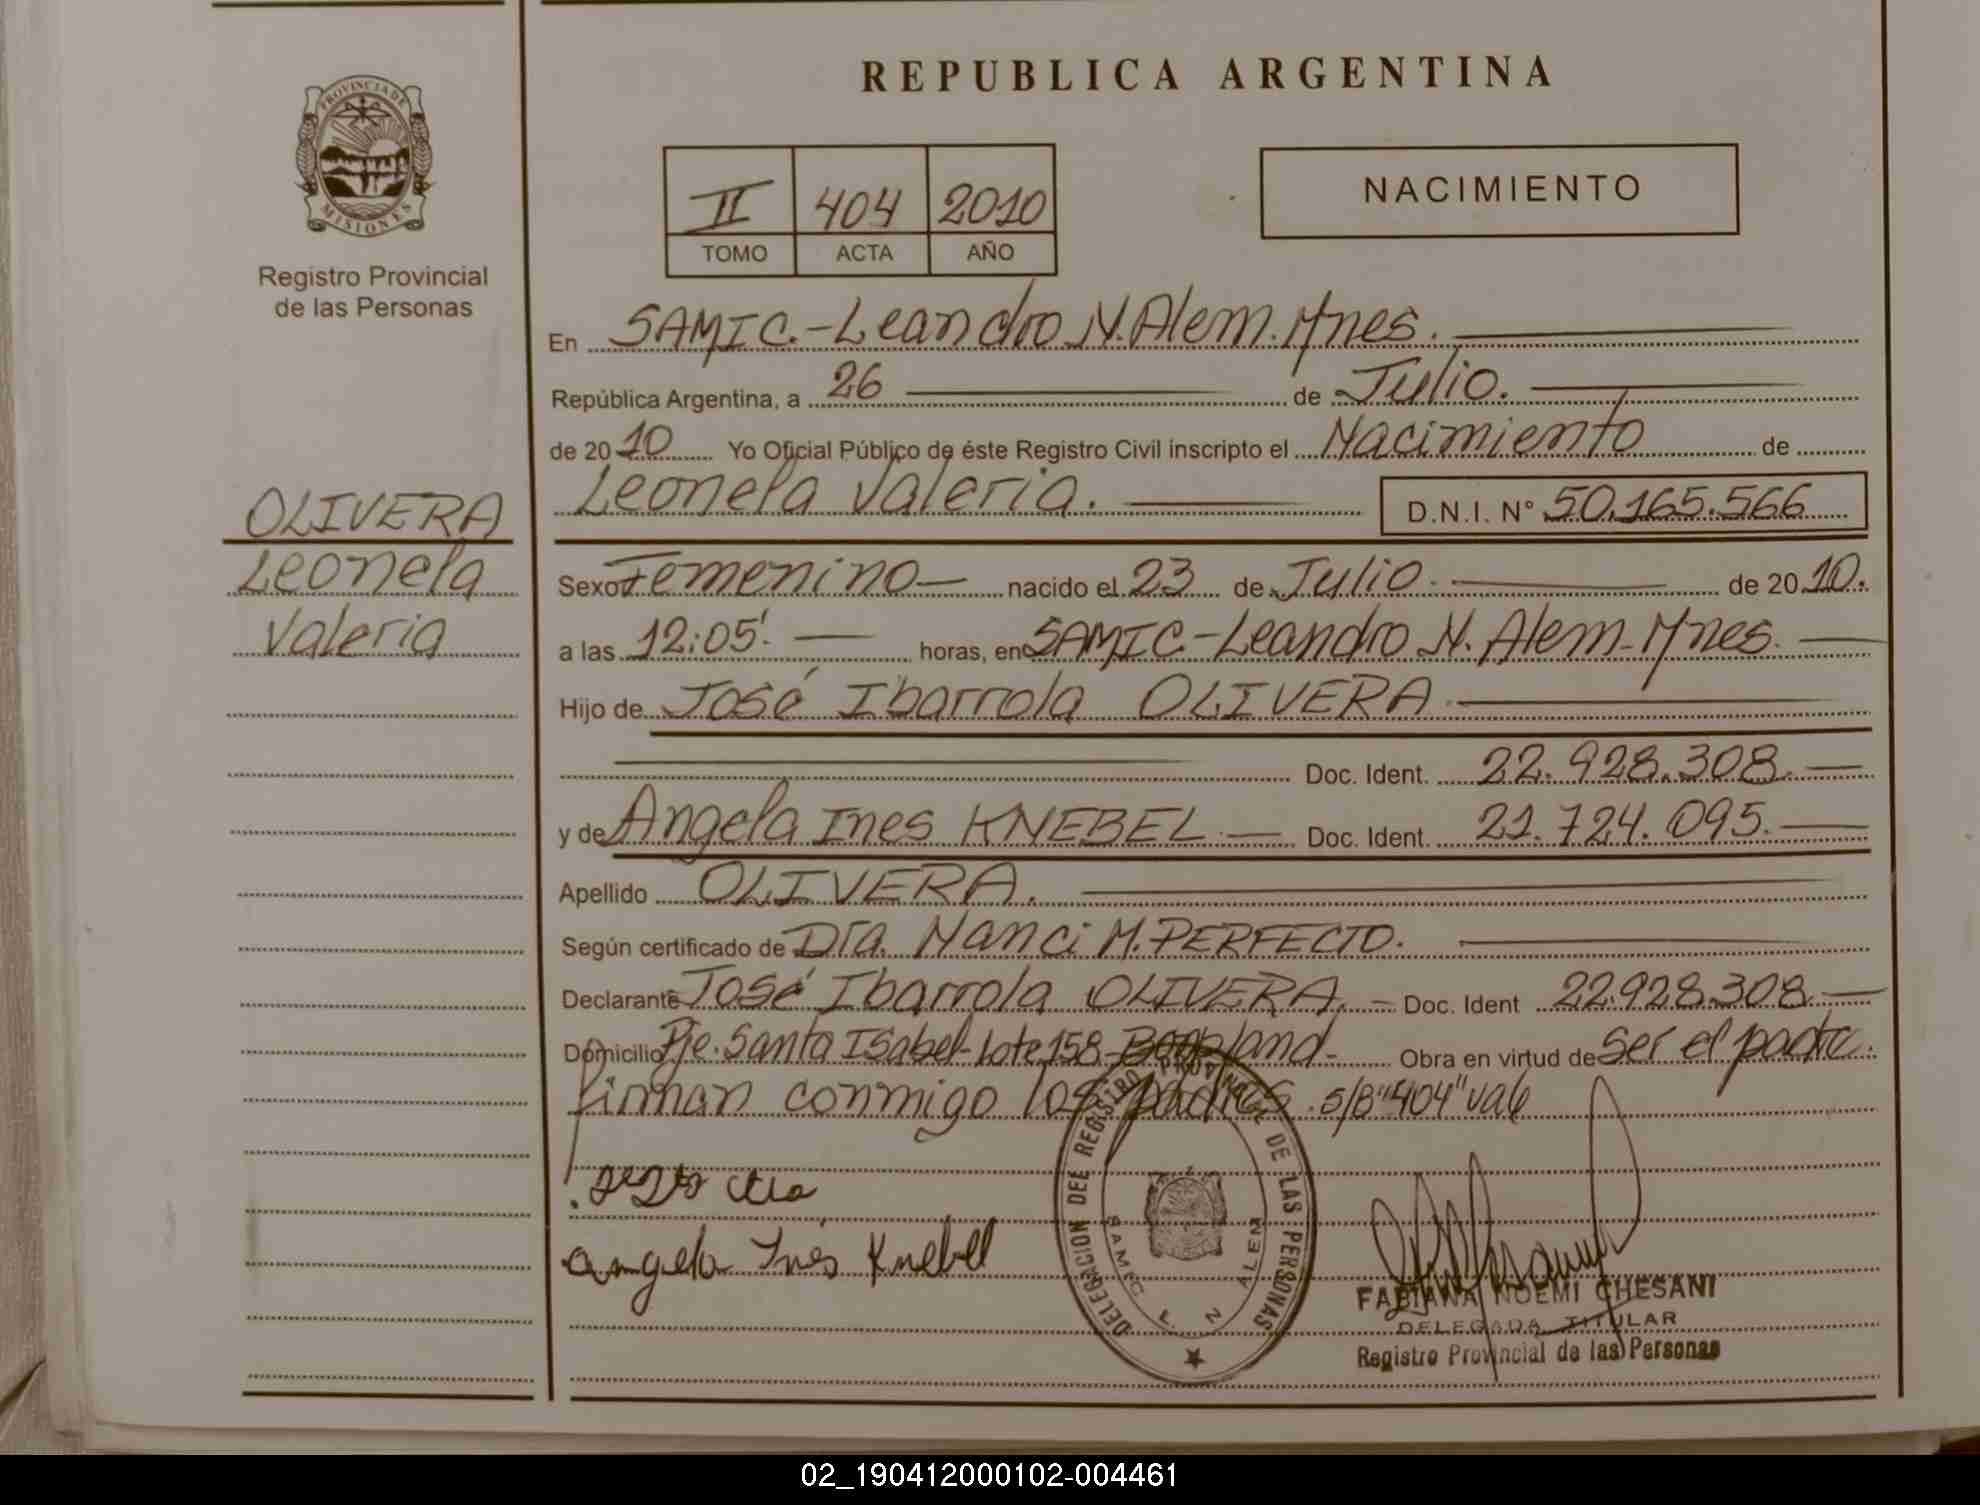 REPUBLICA ARGENTINA
PROVINCIA DE
MISIONES
Registro Provincial
de las Personas
II 404 2010
TOMO ACTA AÑO
NACIMIENTO
En SAMIC.-Leandro N. Alem. Mnes.
República Argentina, a 26 de Julio.
de 2010 Yo Oficial Público de éste Registro Civil inscripto el Nacimiento de
Leonela Valeria. D.N.I. N° 50.165.566
OLIVERA
Leonela
Valeria
Sexo Femenino nacido el 23 de Julio. de 2010.
a las 12:05'. horas, en SAMIC-Leandro N. Alem-Mnes.
Hijo de José Ibarrola OLIVERA
Doc. Ident. 22.928.308.
y de Angela Ines KNEBEL Doc. Ident. 21.724.095.
Apellido OLIVERA.
Según certificado de Dra. Nanci M. PERFECTO.
Declarante José Ibarrola OLIVERA. Doc. Ident 22.928.308
Domicilio Pje. Santa Isabel-Lote 158- Obra en virtud de Ser el padre.
firman conmigo los padres. S/B "404" vale
Angela Inés Knebel
DELEGACION DEL REGISTRO PROVINCIAL DE LAS PERSONAS
L. N. ALEM
FABIANA NOEMI CHESANI
DELEGADA TITULAR
Registro Provincial de las Personas
02_190412000102-004461